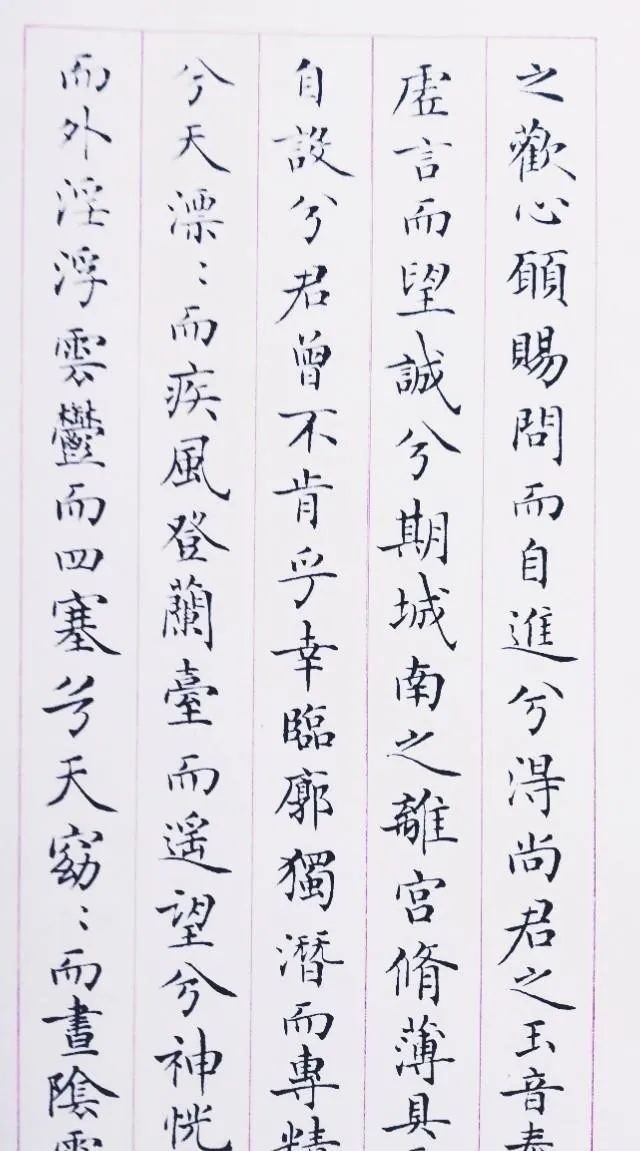 之歡心願賜問而自進兮得尚君之玉音奉
虛言而望誠兮期城南之離宮脩薄具
自設兮君曾不肯乎幸臨廓獨潛而專精
兮天漂〻而疾風登蘭臺而遙望兮神怳
而外淫浮雲鬱而四塞兮天窈〻而晝陰